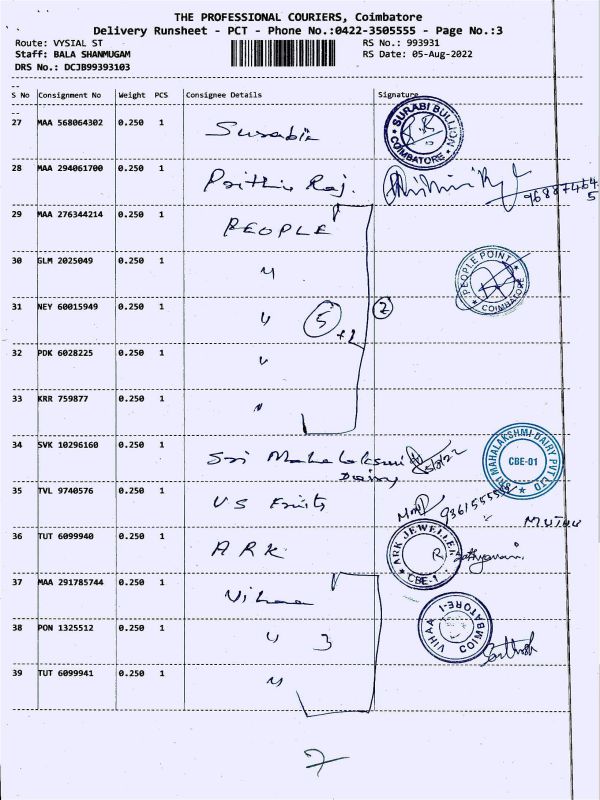 THE PROFESSIONAL COURIERS, Coimbatore
Delivery Runsheet - PCT - Phone No.:0422-3505555 - Page No.:3
Route: VYSIAL ST RS No.: 993931
Staff: BALA SHANMUGAM RS Date: 05-Aug-2022
DRS No.: DCJB99393103
S No Consignment No Weight PCS Consignee Details Signature
27 MAA 568064302 0.250 1 Surabi
SURABI BULLION COIMBATORE
28 MAA 294061700 0.250 1 Prithvi Raj.
29 MAA 276344214 0.250 1 PEOPLE
30 GLM 2025049 0.250 1 "
PEOPLE POINT COIMBATORE
31 NEY 60015949 0.250 1 " 5 +2 2
32 PDK 6028225 0.250 1 "
33 KRR 759877 0.250 1 "
34 SVK 10296160 0.250 1 Sri Mahalakshmi Dairy 5/8/22
SRI MAHALAKSHMI DAIRY PVT LTD CBE-01
35 TVL 9740576 0.250 1 US Fruits
36 TUT 6099940 0.250 1 ARK
ARK JEWELLER CBE-1
37 MAA 291785744 0.250 1 Vihaa
38 PON 1325512 0.250 1 " 3
VIHAA COIMBATORE-1
39 TUT 6099941 0.250 1 "
7